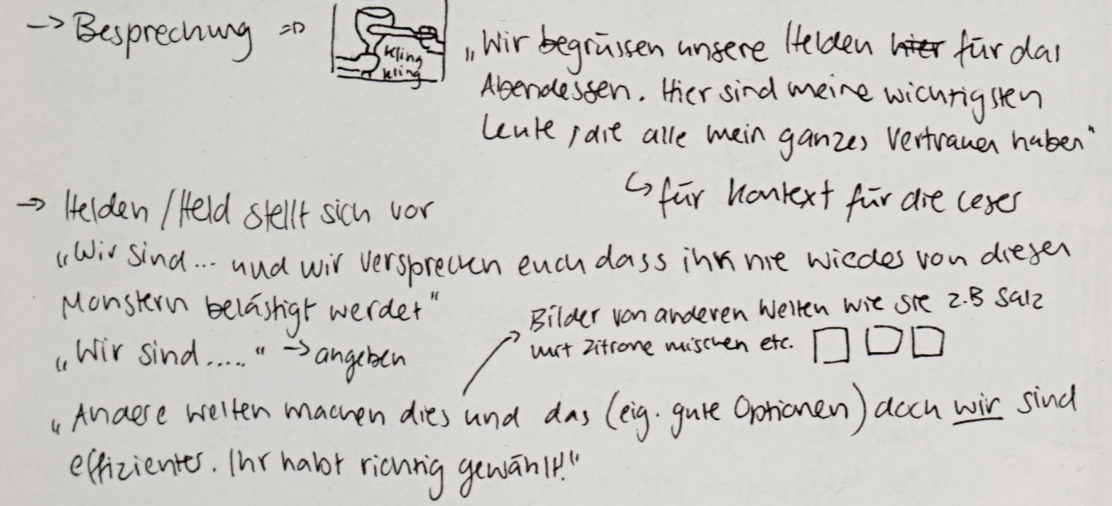 -> Besprechung => Kling Kling „Wir begrüssen unsere Helden hier für das
Abendessen. Hier sind meine wichtigsten
Leute, die alle mein ganzes Vertrauen haben"
↳ für Kontext für die Leser
-> Helden / Held stellt sich vor
„Wir sind... und wir versprechen euch dass ihr nie wieder von diesen
Monstern belästigt werdet"
„Wir sind....." -> angeben
Bilder von anderen Welten wie sie z.B Salz
mit Zitrone mischen etc.
„Andere Welten machen dies und das (eig. gute Optionen) doch wir sind
effizienter. Ihr habt richtig gewählt!"